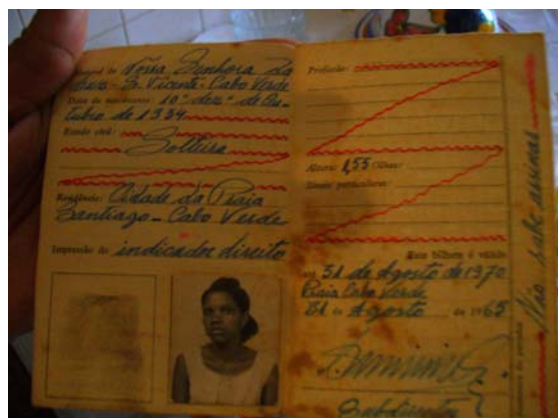 Natural de Nossa Senhora da
Luz - S. Vicente - Cabo Verde
Data do nascimento: 10 = dez. = de Ou-
tubro de 1934
Estado civil: Solteira
Residência: Cidade da Praia
Santiago - Cabo Verde
Impressão do indicador direito
Profissão:
Altura: 1,55 Olhos:
Sinais particulares:
Este bilhete é válido
até 31 de Agosto de 1970
Praia Cabo Verde
31 de Agosto de 1965
Não sabe assinar